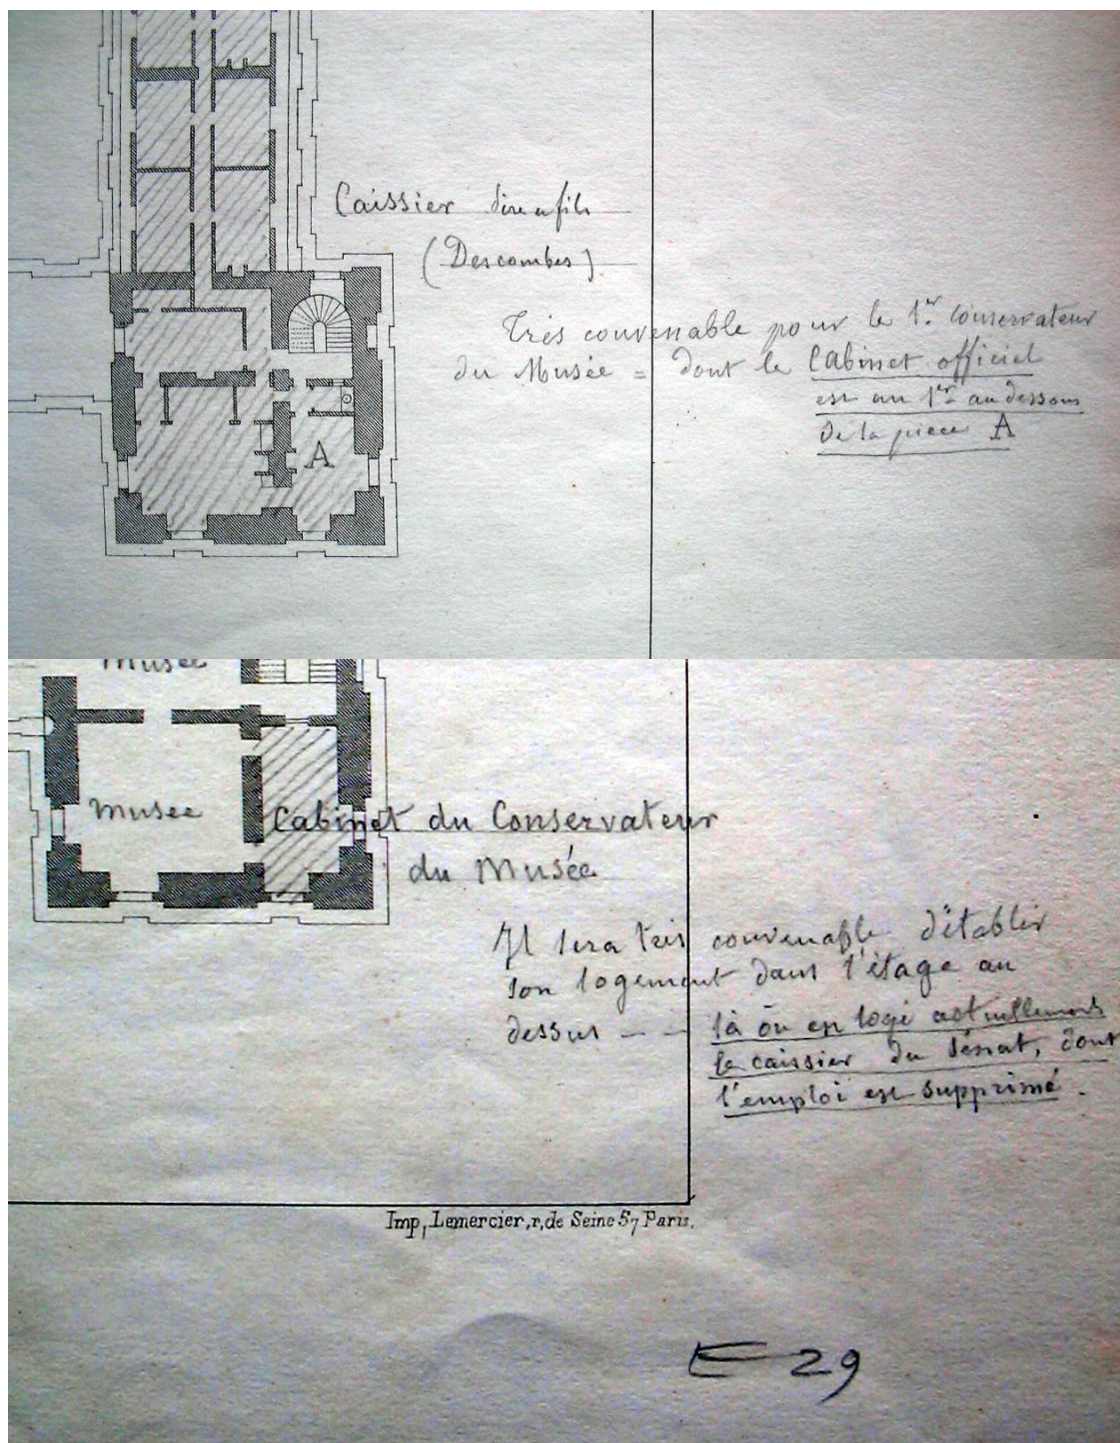 Caissier
(Descombes)
Très convenable pour le 1er Conservateur
du Musée = dont le Cabinet officiel
est au 1er au dessous
de la piece A
A
Musée
Musée
Cabinet du Conservateur
du Musée
Il sera très convenable d'établir
son logement dans l'étage au
dessus - -  là où est logé actuellement
le caissier du Sénat, dont
l'emploi est supprimé.
Imp, Lemercier, r, de Seine 57 Paris.
E 29